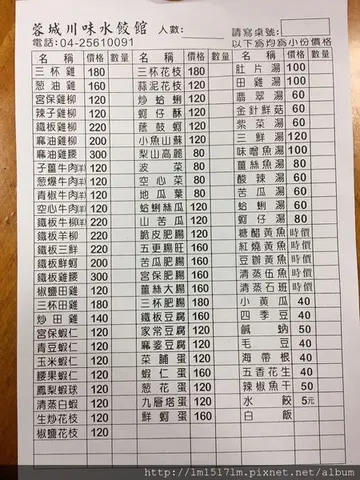 蓉城川味水餃館 人數: 請寫桌號:
電話:04-25610091 以下為均為小份價格
價格 數量 價格 數量 價格 數量
三杯雞 180 三杯花枝 180 肚片湯 100
葱油雞 160 蒜泥花枝 120 田雞湯 100
宮保雞柳 120 炒蛤蜊 120 翡翠湯 60
辣子雞柳 120 蚵仔酥 120 金針鮮菇 60
鐵板雞柳 220 蔭鼓蚵 120 紫菜湯 60
麻油雞柳 200 小魚山蘇 120 三鮮湯 100
麻油雞腰 300 梨山高麗 80 味噌魚湯 100
子薑牛肉 120 菠菜 80 薑絲魚湯 80
葱爆牛肉 120 空心菜 80 酸辣湯 60
青椒牛肉 120 地瓜葉 80 苦瓜湯 60
空心牛肉 120 蛤蜊絲瓜 120 蛤蜊湯 60
鐵板牛柳 220 山苦瓜 120 蚵仔湯 80
鐵板羊柳 220 脆皮肥腸 120 糖醋黃魚 時價
鐵板三鮮 220 五更腸旺 160 紅燒黃魚 時價
鐵板鮮蚵 200 宮保肥腸 160 豆瓣黃魚 時價
鐵板雞腰 300 薑絲肥腸 120 清蒸伍魚 時價
椒鹽田雞 120 苦瓜肥腸 120 清蒸石班 時價
三杯田雞 180 三杯肥腸 180 小黃瓜 40
炒田雞 140 鐵板豆腐 120 四季豆 40
宮保蝦仁 120 家常豆腐 120 鹹蚋 50
青豆蝦仁 120 麻婆豆腐 120 毛豆 40
玉米蝦仁 120 菜脯蛋 120 海帶根 40
腰果蝦仁 120 蝦仁蛋 160 五香花生 40
鳳梨蝦球 150 葱花蛋 120 辣椒魚干 50
清蒸白蝦 120 九層塔蛋 120 水餃 5元
生炒花枝 120 鮮蚵蛋 160 白飯
椒鹽花枝 120
http://lm1517lm.pixnet.net/album